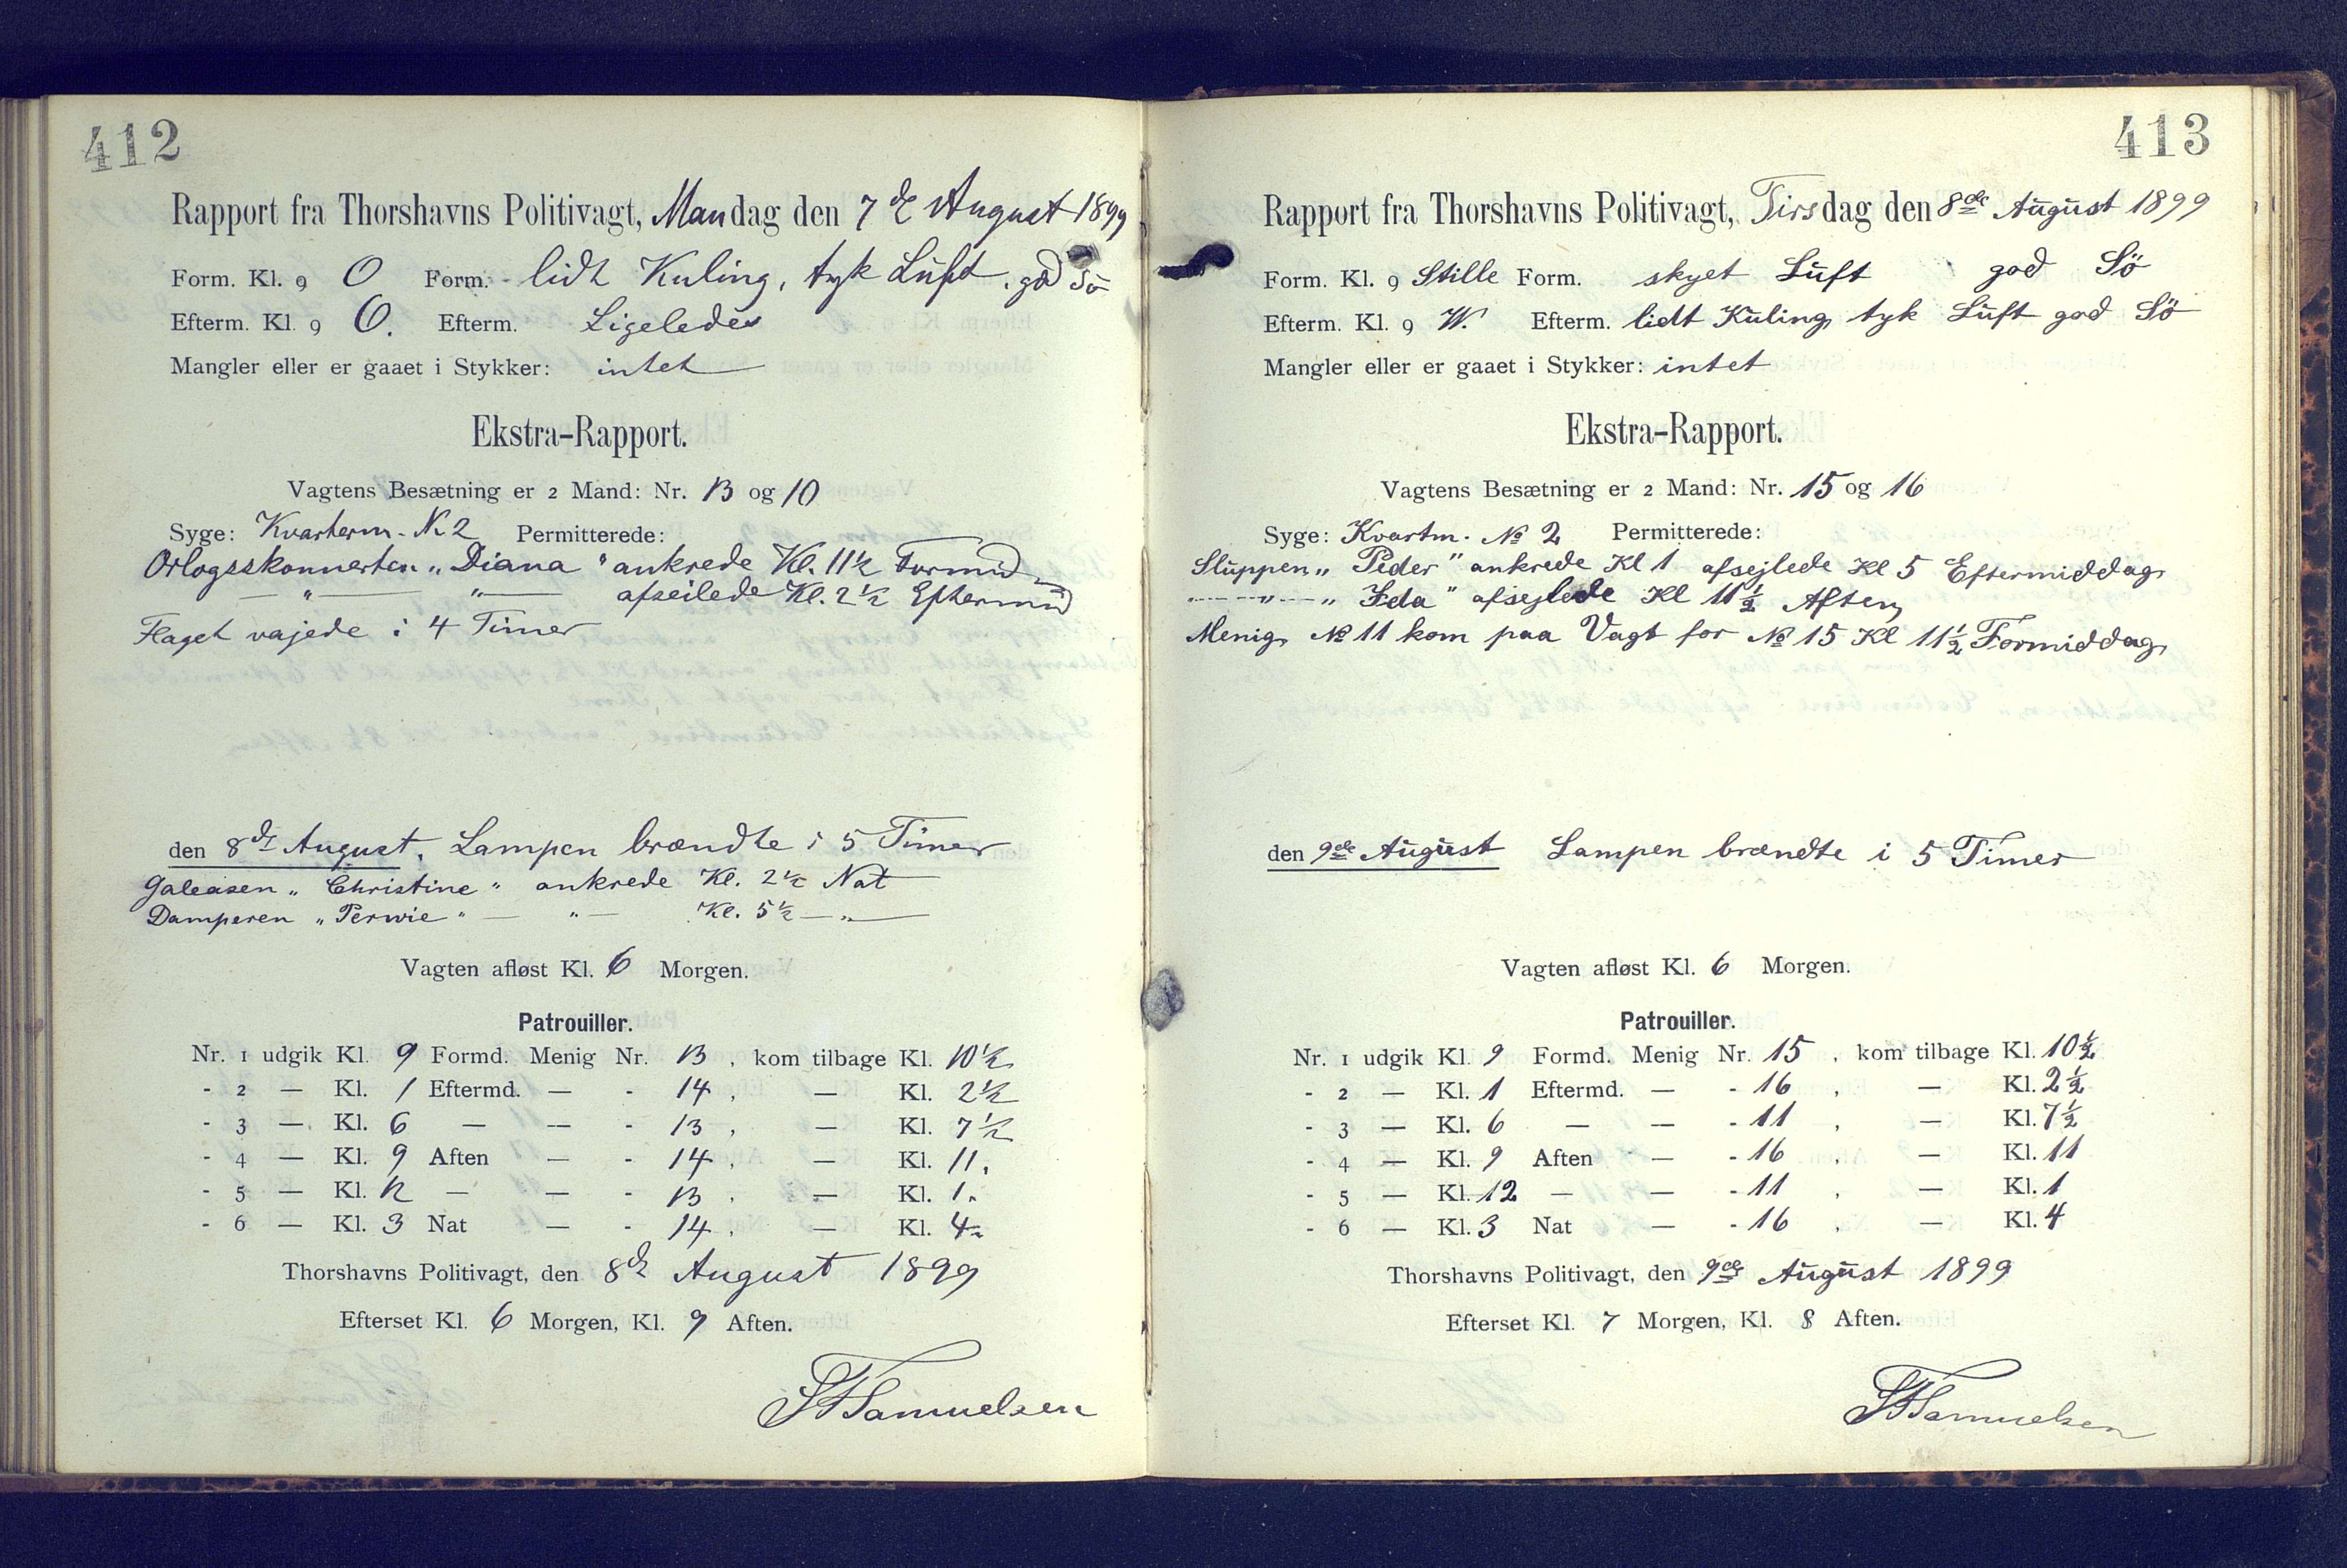 412
Rapport fra Thorshavns Politivagt, Mandag den 7de August 1899
Form. Kl. 9 O Form. lidt Kuling, tyk Luft, god Sö
Efterm. Kl. 9 O. Efterm. Ligeledes
Mangler eller er gaaet i Stykker: intet
Ekstra-Rapport.
Vagtens Besætning er 2 Mand: Nr. 13 og 10
Syge: Kvarterm. N. 2 Permitterede:
Orlogsskonnerten „Diana" ankrede Kl. 11½ Formid
— " — " — afseilede Kl. 2½ Eftermid
Flaget vajede i 4 Timer
den 8de August. Lampen brændte i 5 Timer
Galeasen „Christine" ankrede Kl. 2½ Nat
Damperen „Perwie" — " — Kl. 5½ — " —
Vagten afløst Kl. 6 Morgen.
Patrouiller.
Nr. 1 udgik Kl. 9 Formd. Menig Nr. 13, kom tilbage Kl. 10½
- 2 — Kl. 1 Eftermd. — - 14, — Kl. 2½
- 3 — Kl. 6 — — - 13, — Kl. 7½
- 4 — Kl. 9 Aften — - 14, — Kl. 11.
- 5 — Kl. 12 — — - 13, — Kl. 1.
- 6 — Kl. 3 Nat — - 14, — Kl. 4.
Thorshavns Politivagt, den 8de August 1899
Efterset Kl. 6 Morgen, Kl. 9 Aften.
Samuelsen
413
Rapport fra Thorshavns Politivagt, Tirsdag den 8de August 1899
Form. Kl. 9 Stille Form. skyet Luft god Sö
Efterm. Kl. 9 W. Efterm. lidt Kuling tyk Luft god Sö
Mangler eller er gaaet i Stykker: intet
Ekstra-Rapport.
Vagtens Besætning er 2 Mand: Nr. 15 og 16
Syge: Kvartm. No 2 Permitterede:
Sluppen „Peder" ankrede Kl 1 afsejlede Kl 5 Eftermiddag
— " — „Ida" afsejlede Kl 11½ Aften
Menig No 11 kom paa Vagt for No 15 Kl 11½ Formiddag
den 9de August Lampen brændte i 5 Timer
Vagten afløst Kl. 6 Morgen.
Patrouiller.
Nr. 1 udgik Kl. 9 Formd. Menig Nr. 15, kom tilbage Kl. 10½
- 2 — Kl. 1 Eftermd. — - 16, — Kl. 2½
- 3 — Kl. 6 — — - 11, — Kl. 7½
- 4 — Kl. 9 Aften — - 16, — Kl. 11
- 5 — Kl. 12 — — - 11, — Kl. 1
- 6 — Kl. 3 Nat — - 16, — Kl. 4
Thorshavns Politivagt, den 9de August 1899
Efterset Kl. 7 Morgen, Kl. 8 Aften.
Samuelsen